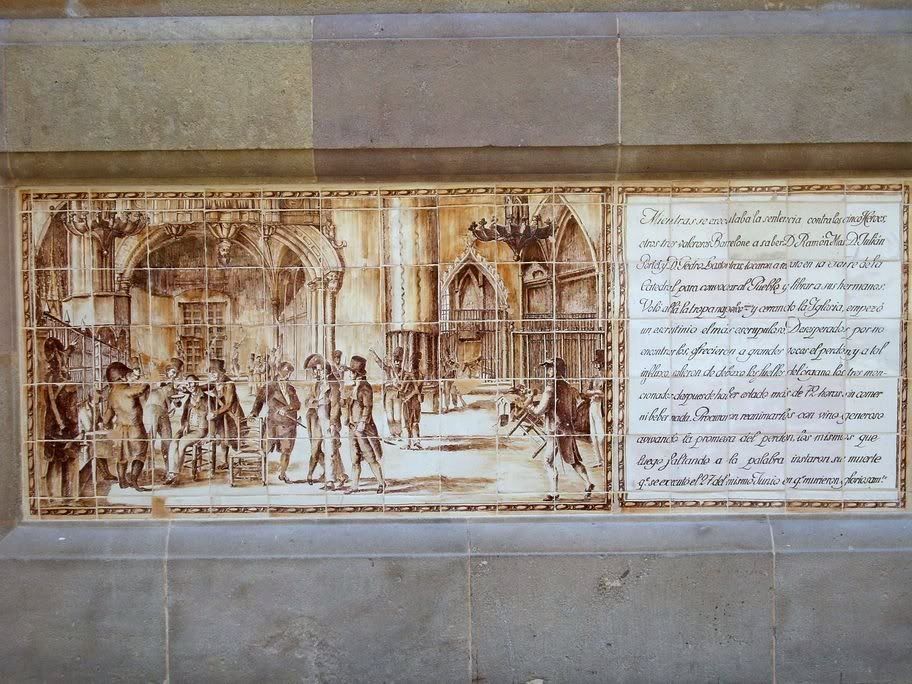 Mientras se executaba la sentencia contra los cinco Héroes,
otros tres valerosos Barcelone a saber D. Ramón Mas, D. Julián
Portet y D. Pedro Lastortras, tocaron a rebato en la Torre de la
Catedral, para convocar al Pueblo y librar a sus hermanos.
Voló allá la tropa napoleo y cerrando la Iglesia, empezó
un escrutinio el más escrupuloso. Desesperados por no
encontrarlos, ofrecieron a grandes voces el perdón y a tal
influxo, salieron de debaxo los fuelles del órgano, los tres men-
cionados despues de haber estado más de 72 horas sin comer
ni beber nada. Procuraron reanimarlos con vino generoso
avivando la promesa del perdón. Los mismos que
luego faltando a la palabra instaron su muerte
q.e se executó el 27 del mismo Junio en q.e murieron gloriosam.te